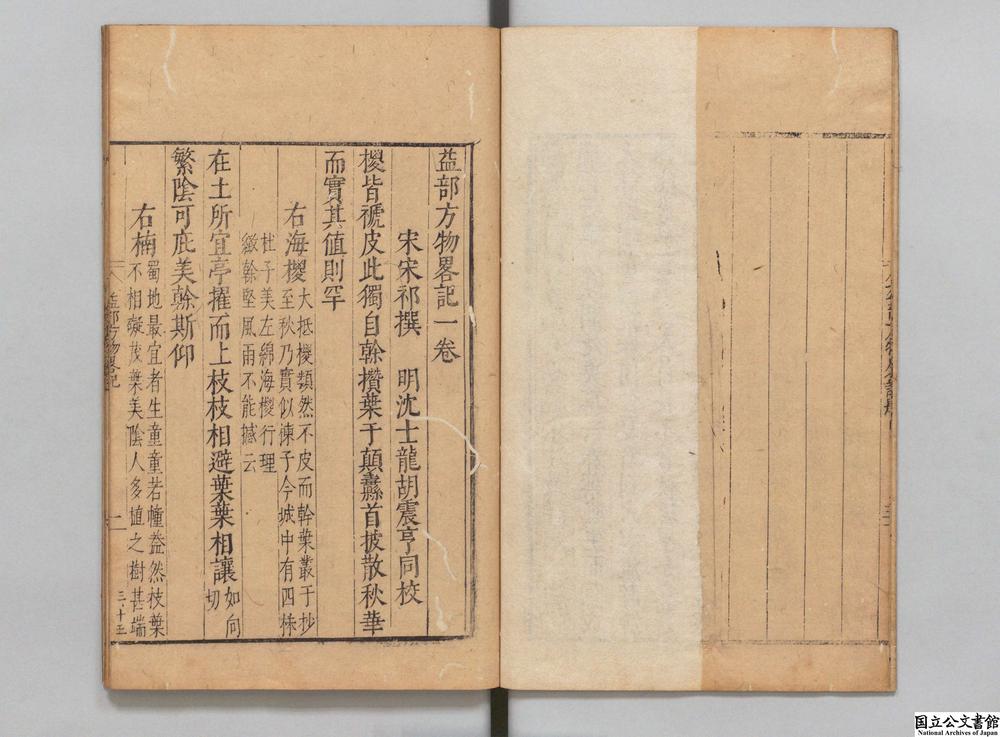 益部方物畧記一卷
宋宋祁撰　明沈士龍胡震亨同校
椶皆褫皮此獨自幹攢葉于顛纛首披散秋華
而實其值則罕
右海椶大抵椶類然不皮而幹葉叢于抄
至秋乃實似楝子今城中有四株
杜子美左綿海椶行理
緻幹堅風雨不能撼云
在土所宜亭擢而上枝枝相避葉葉相讓如向
切
繁陰可庇美榦斯仰
右楠蜀地最宜者生童童若幢蓋然枝葉
不相礙茂葉美陰人多植之樹甚端
益部方物畧記
一
三十五
国立公文書館
National Archives of Japan